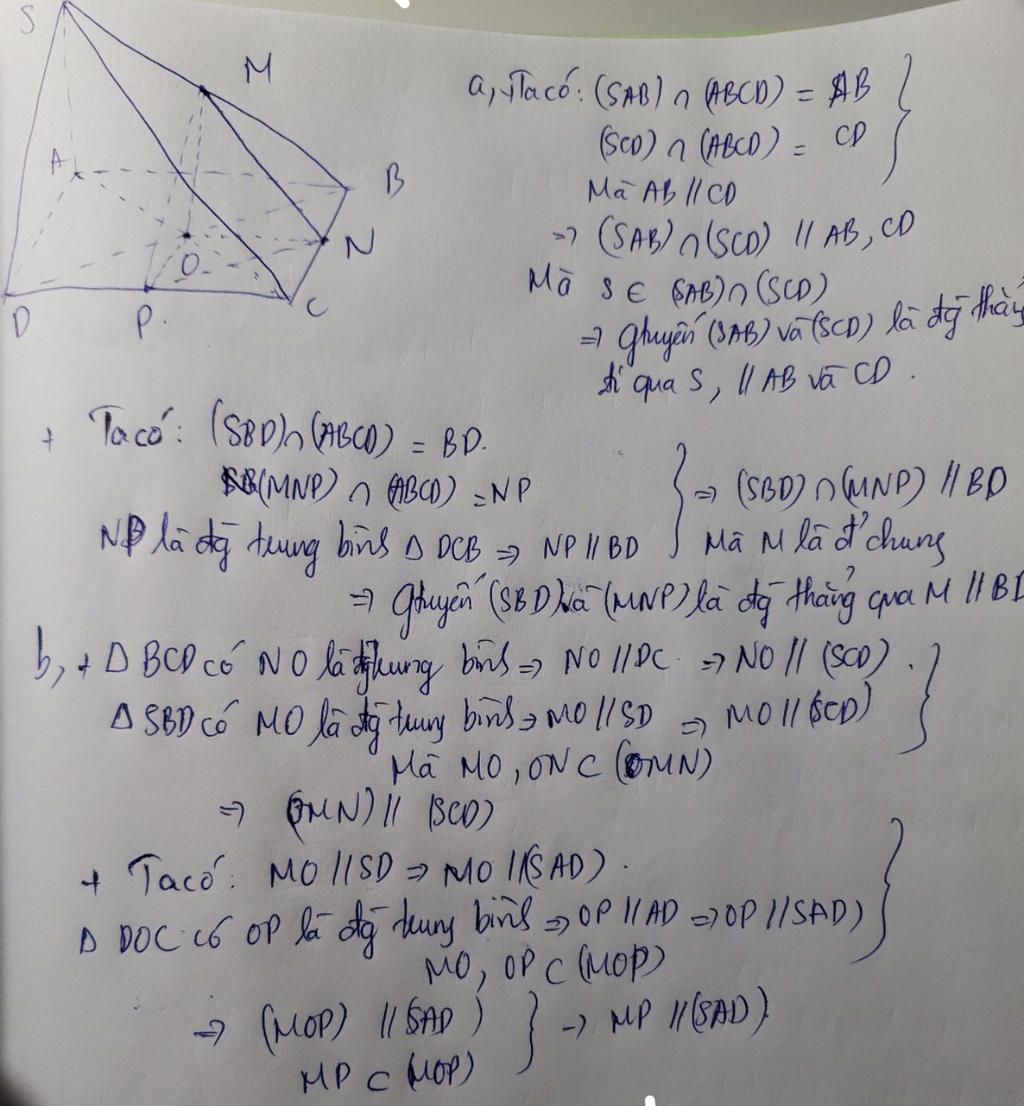 S
M
A
B
O
N
D
P.
C
a, Ta có: (SAB) ∩ (ABCD) = AB
(SCD) ∩ (ABCD) = CD
Mà AB // CD
=> (SAB) ∩ (SCD) // AB, CD
Mà S ∈ (SAB) ∩ (SCD)
=> gtuyến (SAB) và (SCD) là đg thẳng
đi qua S, // AB và CD.
+ Ta có: (SBD) ∩ (ABCD) = BD.
(MNP) ∩ (ABCD) = NP
NP là đg trung bình Δ DCB => NP // BD
=> (SBD) ∩ (MNP) // BD
Mà M là đ' chung
=> gtuyến (SBD) và (MNP) là đg thẳng qua M // BD
b, + Δ BCD có NO là đg trung bình => NO // DC. => NO // (SCD).
Δ SBD có MO là đg trung bình => MO // SD => MO // (SCD)
Mà MO, ON ⊂ (OMN)
=> (OMN) // (SCD)
+ Ta có: MO // SD => MO // (SAD).
Δ DOC có OP là đg trung bình => OP // AD => OP // SAD)
MO, OP ⊂ (MOP)
=> (MOP) // (SAD)
MP ⊂ (MOP)
=> MP // (SAD)